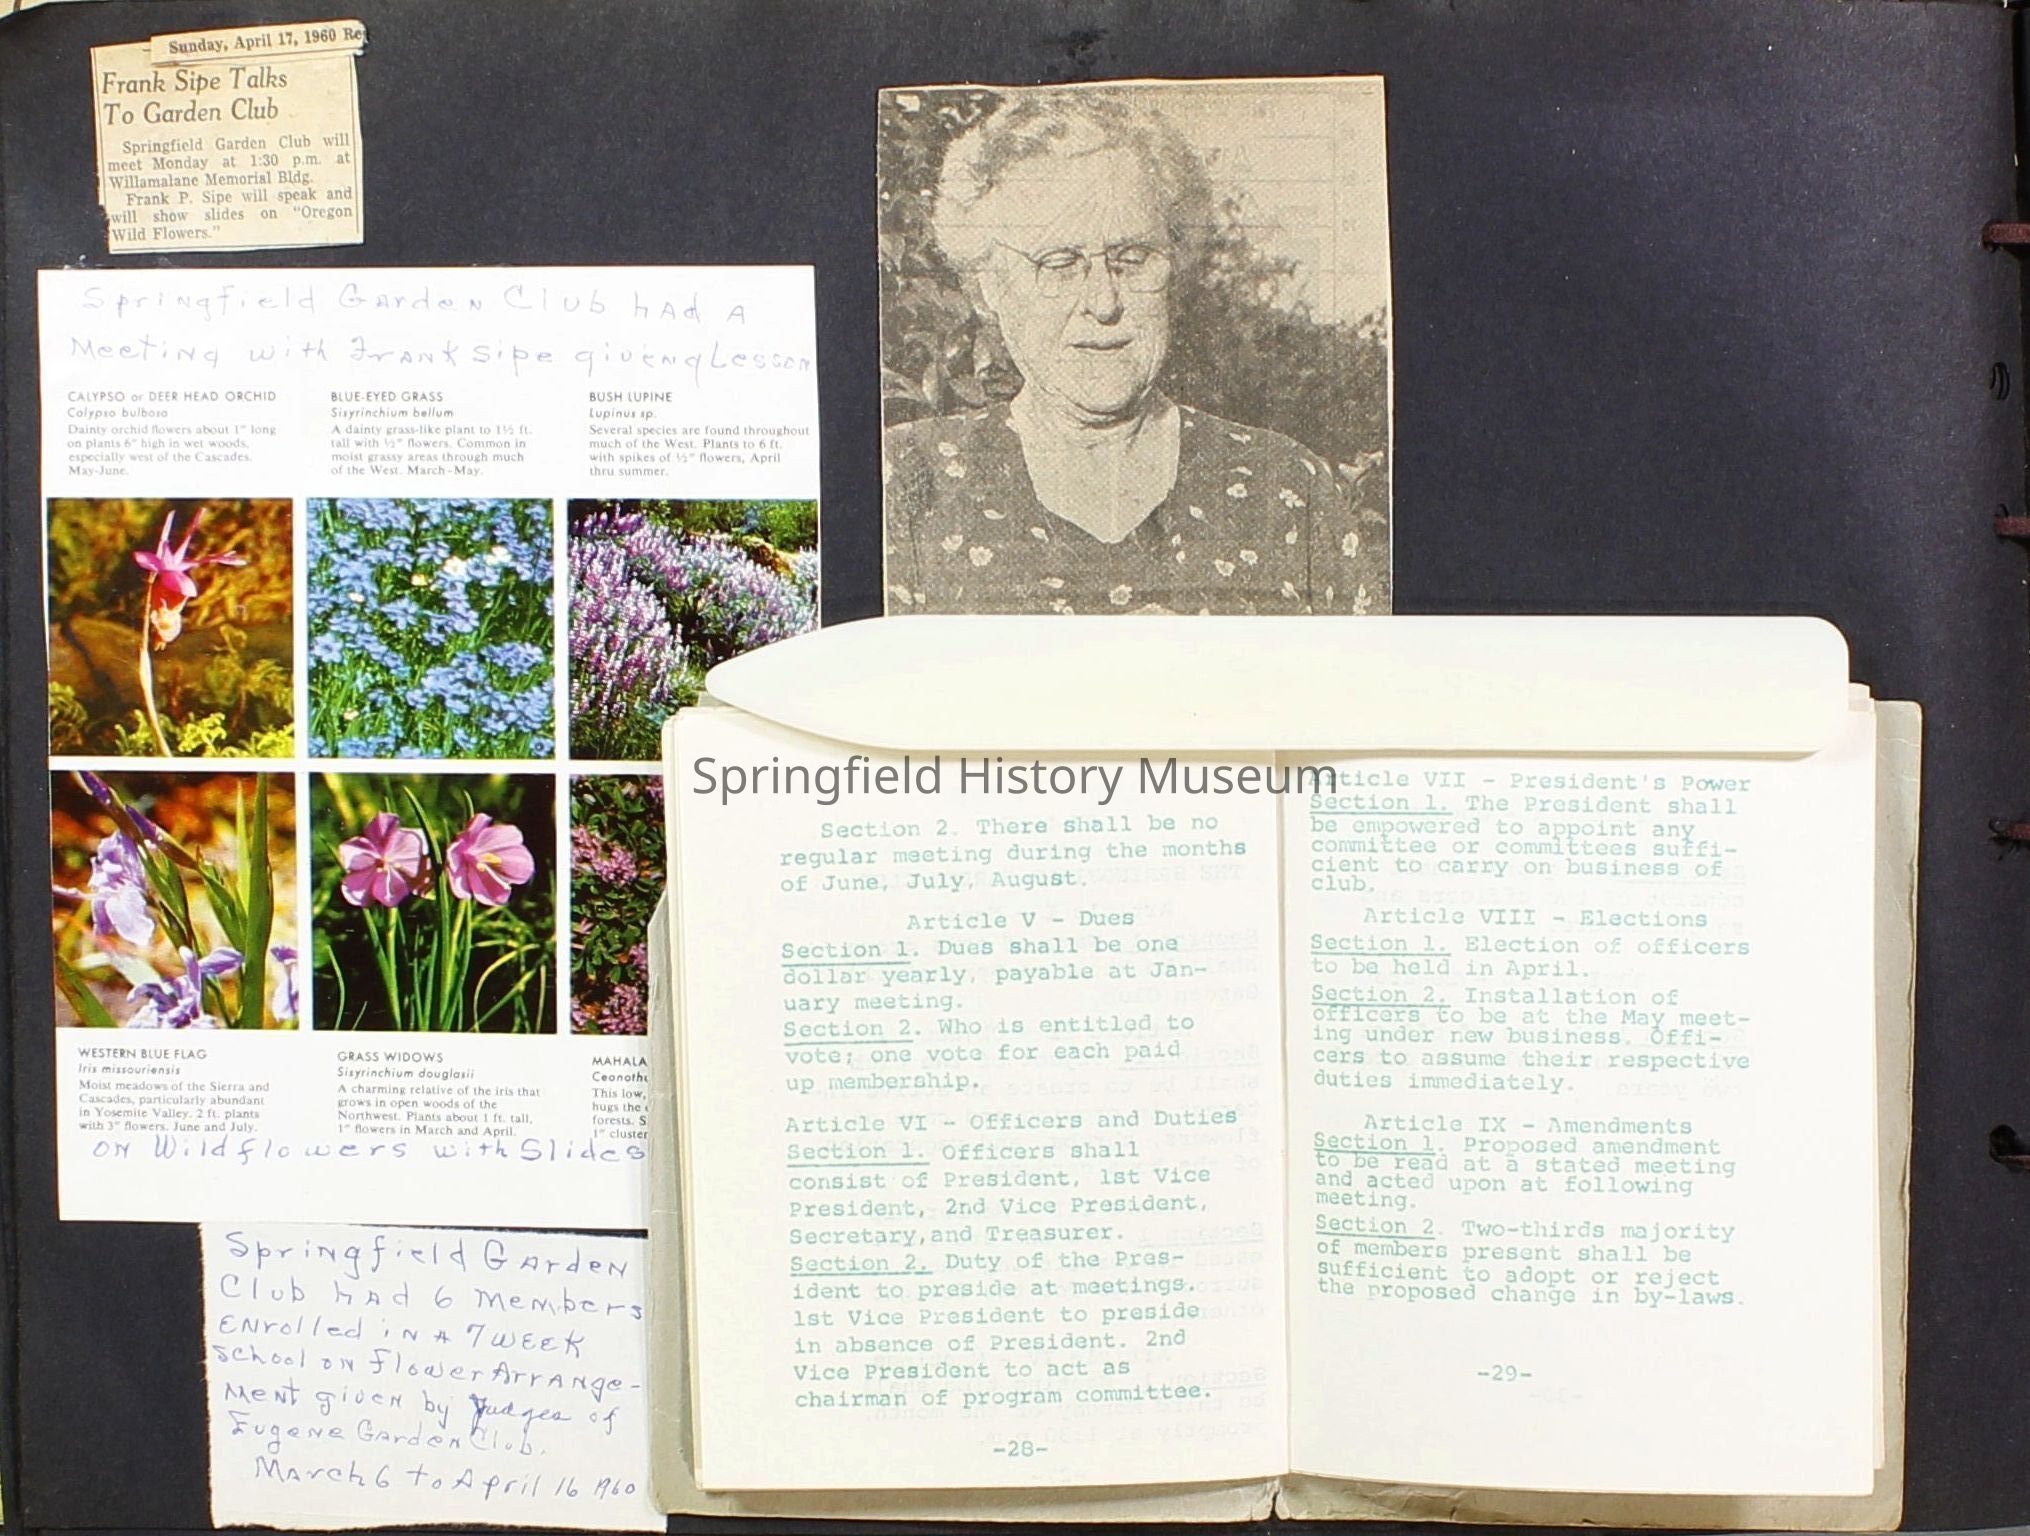 Sunday, April 17, 1960 Re
Frank Sipe Talks
To Garden Club
Springfield Garden Club will
meet Monday at 1:30 p.m. at
Willamalane Memorial Bldg.
Frank P. Sipe will speak and
will show slides on "Oregon
Wild Flowers."
Springfield Garden Club had A
Meeting with Frank Sipe givenq Lesson
CALYPSO or DEER HEAD ORCHID
Calypso bulbosa
Dainty orchid flowers about 1" long
on plants 6" high in wet woods,
especially west of the Cascades.
May-June.
BLUE-EYED GRASS
Sisyrinchium bellum
A dainty grass-like plant to 1½ ft.
tall with ½" flowers. Common in
moist grassy areas through much
of the West. March-May.
BUSH LUPINE
Lupinus sp.
Several species are found throughout
much of the West. Plants to 6 ft.
with spikes of ½" flowers, April
thru summer.
WESTERN BLUE FLAG
Iris missouriensis
Moist meadows of the Sierra and
Cascades, particularly abundant
in Yosemite Valley. 2 ft. plants
with 3" flowers. June and July.
GRASS WIDOWS
Sisyrinchium douglasii
A charming relative of the iris that
grows in open woods of the
Northwest. Plants about 1 ft. tall,
1" flowers in March and April.
MAHALA
Ceanoth
This low,
hugs the
forests. S
1" cluster
on Wildflowers with Slides
Springfield Garden
Club had 6 Members
Enrolled in A 7 week
School on Flower Arrange-
ment given by Judges of
Eugene Garden Club.
March 6 to April 16 1960
Springfield History Museum
Section 2. There shall be no
regular meeting during the months
of June, July, August.
Article V - Dues
Section 1. Dues shall be one
dollar yearly, payable at Jan-
uary meeting.
Section 2. Who is entitled to
vote; one vote for each paid
up membership.
Article VI - Officers and Duties
Section 1. Officers shall
consist of President, 1st Vice
President, 2nd Vice President,
Secretary,and Treasurer.
Section 2. Duty of the Pres-
ident to preside at meetings.
1st Vice President to preside
in absence of President. 2nd
Vice President to act as
chairman of program committee.
-28-
Article VII - President's Power
Section 1. The President shall
be empowered to appoint any
committee or committees suffi-
cient to carry on business of
club.
Article VIII - Elections
Section 1. Election of officers
to be held in April.
Section 2. Installation of
officers to be at the May meet-
ing under new business. Offi-
cers to assume their respective
duties immediately.
Article IX - Amendments
Section 1. Proposed amendment
to be read at a stated meeting
and acted upon at following
meeting.
Section 2. Two-thirds majority
of members present shall be
sufficient to adopt or reject
the proposed change in by-laws.
-29-